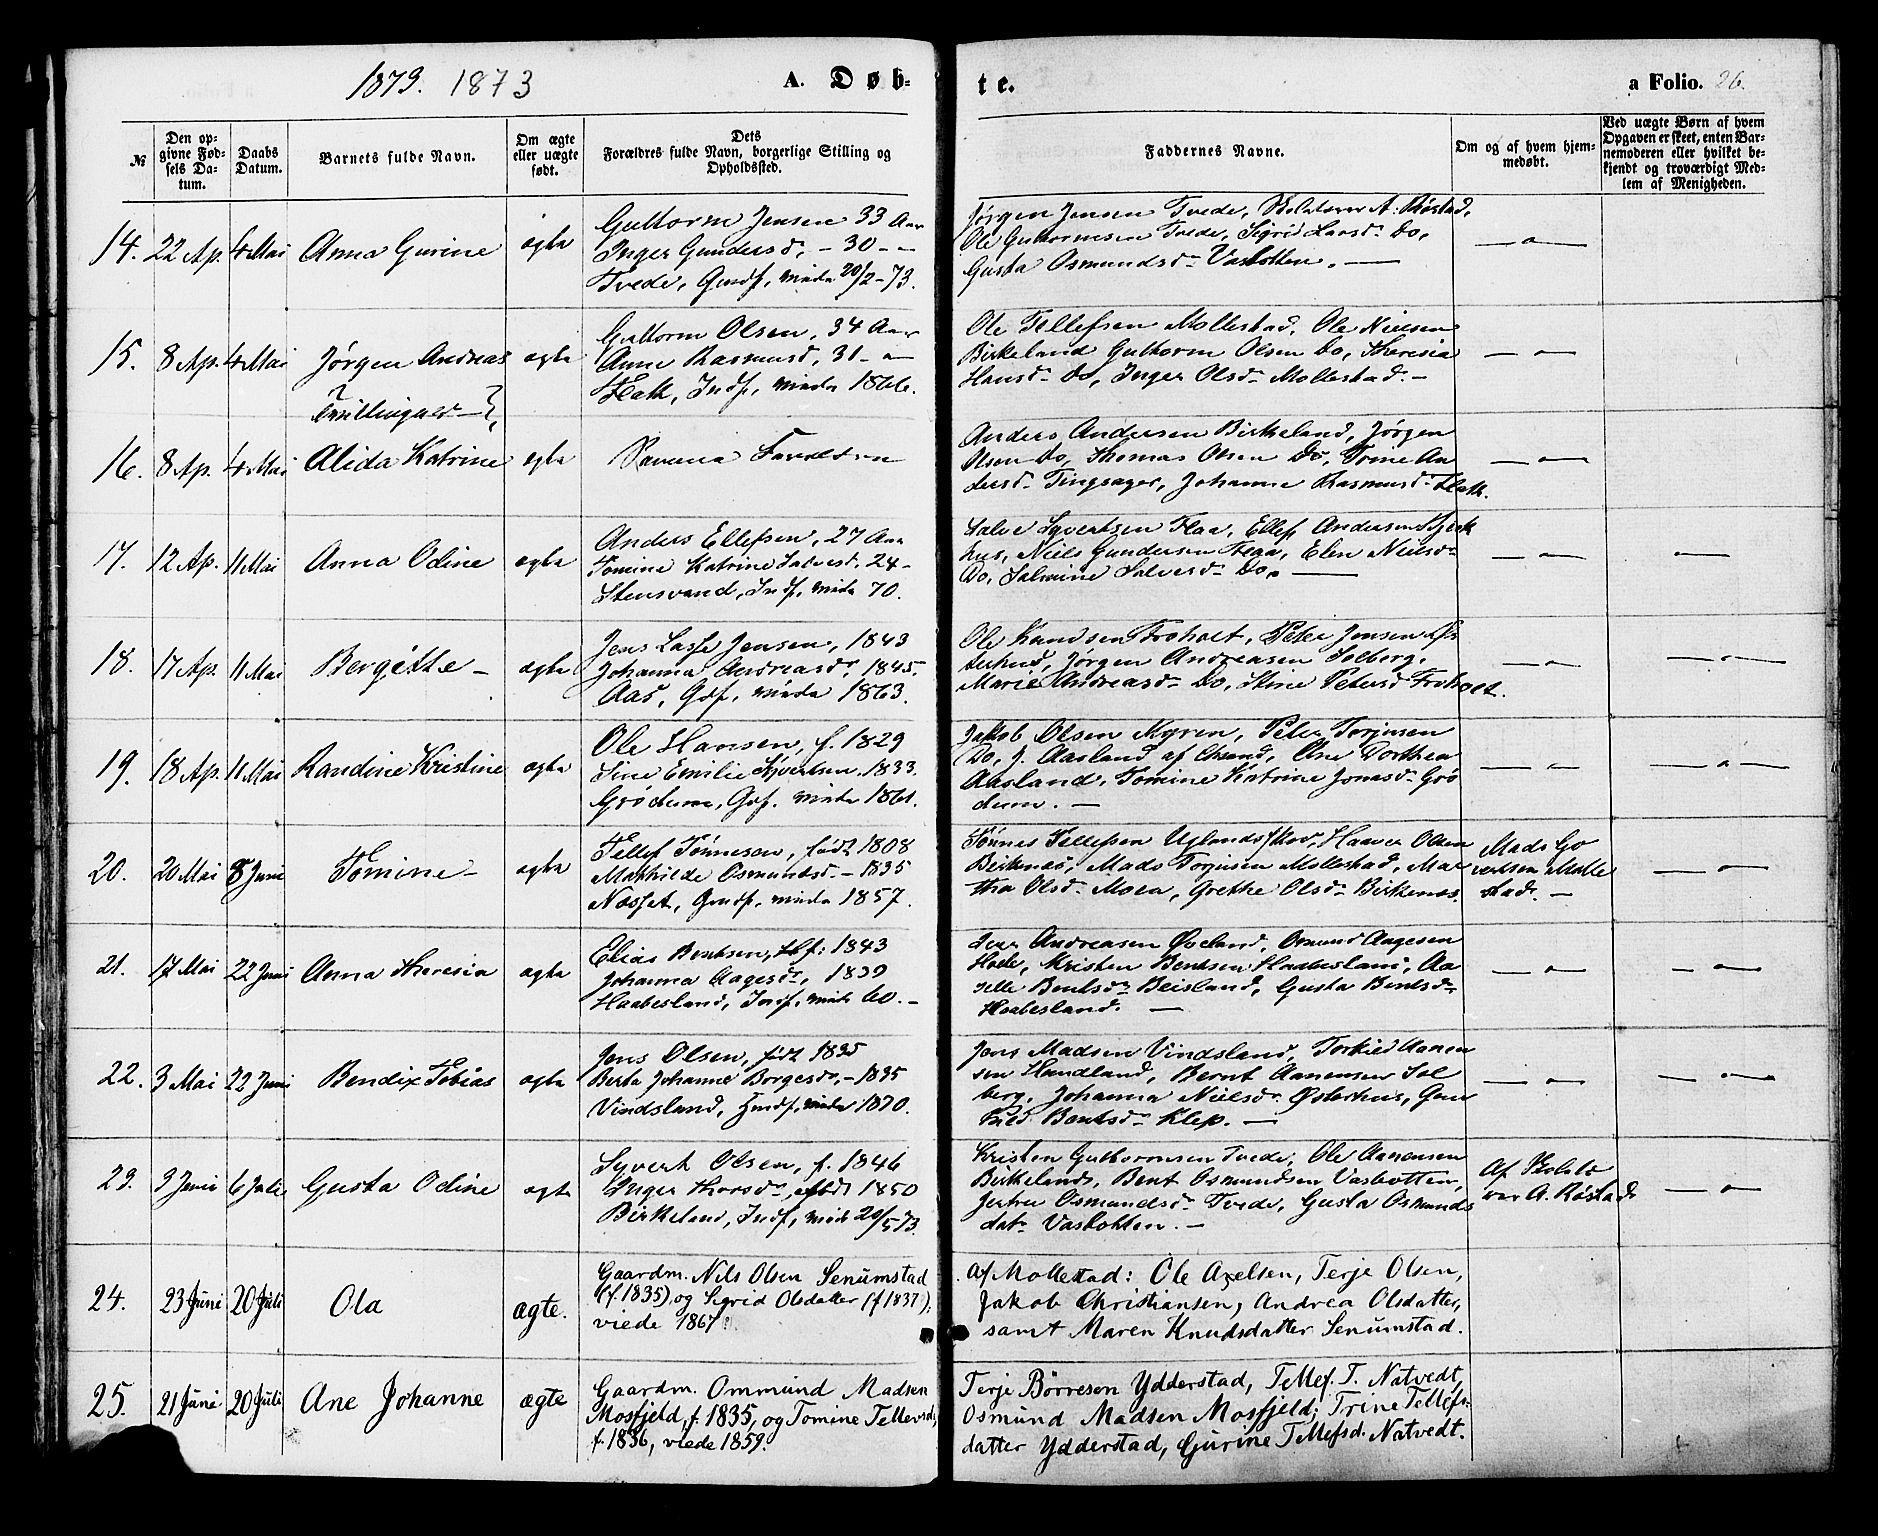 1873. 1873
A. Døb-
te.
a Folio. 26.
№
Den op-
givne Fød-
sels Da-
tum.
Daabs
Datum.
Barnets fulde Navn.
Om ægte
eller uægte
født.
Dets
Forældres fulde Navn, borgerlige Stilling og
Opholdssted.
Faddernes Navne.
Om og af hvem hjem-
medøbt.
Ved uægte Børn af hvem
Opgaven er skeet, enten Bar-
nemoderen eller hvilket be-
kjendt og troværdigt Med-
lem af Menigheden.
14. 22 Ap. 4 Mai Anna Gurine ægte
Guttorm Jensen 33 Aar
Inger Gundersd. - 30 - "
Tvede, Gmdf, viede 20/2 - 73.
Jørgen Jensen Tvede, A. Røstad,
Ole Guttormsen Tvede, Sigrid Larsd. Do,
Gusta Osmundsd. Vasbotten. —
— " —
15. 8 Ap. 4 Mai Jørgen Andreas ægte
Tvillinger
Guttorm Olsen, 34 Aar
Anne Rasmusd, 31 - "
Flak, Indf, viede 1866.
Ole Tellefsen Mollestad, Ole Nielsen
Birkeland Guttorm Olsen Do, Theresia
Hansd. Do, Inger Olsd. Mollestad. -
— " —
16. 8 Ap. 4 Mai Alida Katrine ægte
Samme Forældre
Anders Andersen Birkeland, Jørgen
Olsen Do, Thomas Olsen Do, Trine An
dersd. Tingsager, Johanne Rasmusd. Flak.
— " —
17. 12 Ap. 11 Mai Anna Odine ægte
Anders Ellefsen, 27 Aar
Tomine Katrine Salvesd. 24 -
Stensvand, Indf, viede 70.
Salve Syvertsen Flaa, Ellef Andersen
hus, Niels Gundersen Flaa, Elen Nielsd.
Do, Salmine Salvesd. Do. —
— " —
—
18. 17 Ap. 11 Mai Bergitte - ægte
Jens Lasse Jensen, 1843
Johanna Andreasd. 1845.
Aas, Gdf, viede 1863.
Ole Knudsen Froholt, Peter Jensen Øs
terhus, Jørgen Andreasen Solberg,
Marie Andreasd. Do, Stine Petersd Froholt.
— " —
— " —
19. 18 Ap. 11 Mai Randine Kristine ægte
Ole Hansen, f. 1829
Sine Emilie Syvertsen. 1833.
Grødum, Gdf. viede 1861.
Jakob Olsen Myren, Peter Torjusen
Do, J. Aasland af Chrsand, Ane Dorthea
Aasland, Tomine Katrine Jonasd. Grø
dum. —
— " —
— " —
20. 20 Mai 8 Juni Tomine - ægte
Tellef Tønnesen, født 1808
Mathilde Osmundsd. - 1835
Næset, Gmdf, viede 1857.
Tønnes Tellefsen Uglandsskov, Haaver Olsen
Birkenes, Mads Torjusen Mollestad, Mar
tha Olsd. Moen, Grethe Olsd. Birkenes.
Mads Go
vertsen Molle
stad. -
— " —
21. 17 Mai 22 Juni Anna Theresia ægte
Elias Bentsen, f: 1843
Johanna Aagesd., 1839
Haabesland, Indf, viede 60. -
Iver Andreasen Øveland, Osmund Aagesen
Kristen Bentsen Haabesland, Aa
Bentsd. Beisland, Gusta Bentsd.
Haabesland. —
— " —
— " —
22. 3 Mai 22 Juni Bendix Tobias ægte
Jens Olsen, født 1835
Berta Johanne Borgesd., - 1835
Vindsland, Hmdf, viede 1870.
Jens Madsen Vindsland, Torkied Aanen
sen Haugland, Bernt Aanensen Sol
berg, Johanna Nielsd. Østerhus, Gun
hild Bentsd. Klep. —
— " —
— " —
23. 3 Juni 6 Juli Gusta Odine ægte
Syvert Olsen, f. 1846
Inger Thorsd. født 1850
Birkeland, Indf, viede 29/5 73.
Kristen Guttormsen Tvede, Ole Aanensen
Birkeland, Bent Osmundsen Vasbotten,
Jertru Osmundsd. Tvede, Gusta Osmunds
dat. Vasbotten. —
Af
A. Røstad
— " —
24. 23 Juni 20 Juli Ola ægte.
Gaardm. Nils Olsen Senumstad
(f. 1835), og Sigrid Olsdatter (f 1837),
viede 1867.
Af Mollestad: Ole Axelsen, Terje Olsen,
Jakob Christiansen, Andrea Olsdatter,
samt Maren Knudsdatter Senumstad.
25. 21 Juni 20 Juli Ane Johanne ægte
Gaardm. Ommund Madsen
Mosfjeld, f. 1835, og Tomine Tellevsd.,
f. 1836, viede 1859.
Terje Børresen Ydderstad, Tellef. T. Natvedt,
Osmund Madsen Mosfjeld, Trine Tellefs-
datter Ydderstad, Gurine Tellefsd. Natvedt.